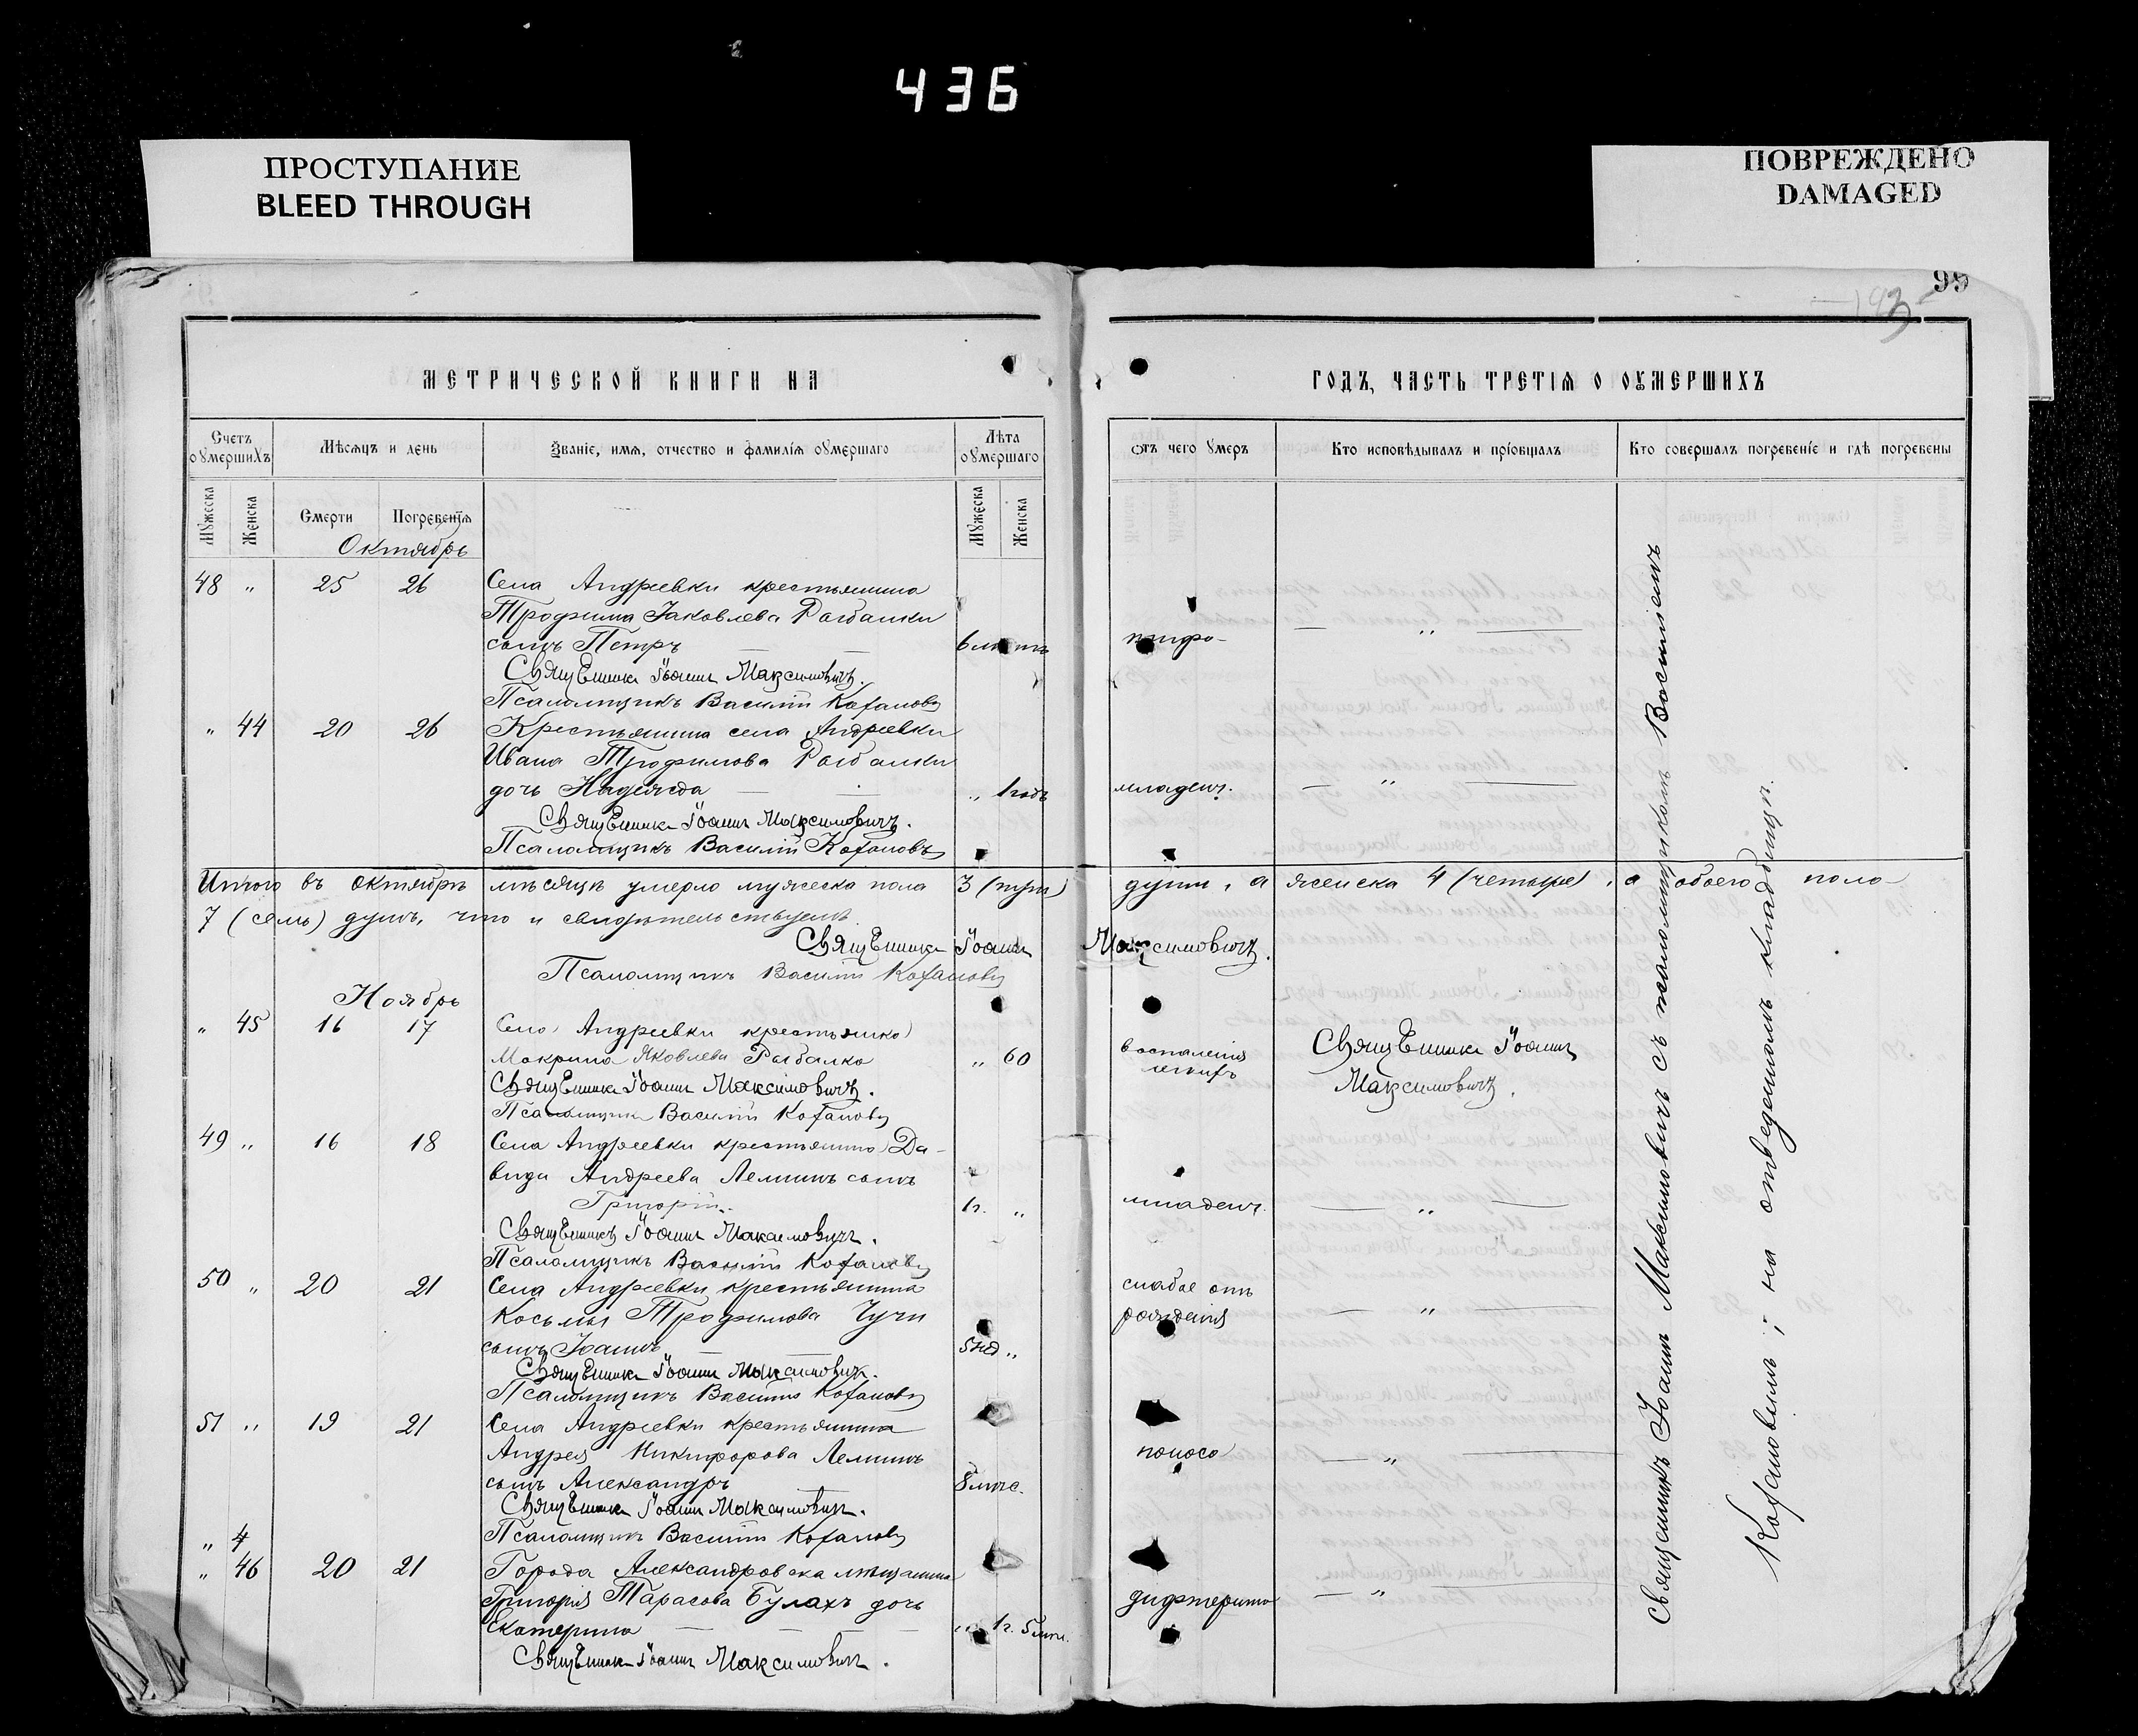 436
ПРОСТУПАНИЕ
BLEED THROUGH
ПОВРЕЖДЕНО
DAMAGED
99
МЕТРИЧЕСКОЙ КНИГИ НА
ГОДЪ, ЧАСТЬ ТРЕТІЯ О ОУМЕРШИХЪ
Счетъ оумершихъ
Мѣсяцъ и день
Званіе, имя, отчество и фамилія оумершаго
Лѣта оумершаго
отъ чего умеръ
Кто исповѣдывалъ и пріобщалъ
Кто совершалъ погребеніе и гдѣ погребены
Мужеска Женска Смерти Погребенія Мужеска Женска
Октябрь
48 „ 25 26 Села Андреевки крестьянина
Трофима Іаковлева Рыбалки
сынъ Петръ — — 6 лѣтъ тифо — „ —
Священникъ Іоаннъ Максимовичъ.
Псаломщикъ Василій Кохановъ
„ 44 20 26 Крестьянина села Андреевки
Ивана Трофимова Рыбалки
дочь Надежда — „ 1 годъ младенч. — „ —
Священникъ Іоаннъ Максимовичъ.
Псаломщикъ Василій Кохановъ
Итого въ октябрѣ мѣсяцѣ умерло мужеска пола 3 (три) души, а женска 4 (четыре), а обоего пола
7 (семь) душъ, что и свидѣтельствуемъ.
Священникъ Іоаннъ Максимовичъ.
Псаломщикъ Василій Кохановъ
Ноябрь
„ 45 16 17 Села Андреевки крестьянка
Макрина Яковлева Рыбалка „ 60 воспаленія легкихъ Священникъ Іоаннъ
Священникъ Іоаннъ Максимовичъ. Максимовичъ.
Псаломщикъ Василій Кохановъ
49 „ 16 18 Села Андреевки крестьянина Да-
вида Андреева Лемишъ сынъ
Григорій. 1 г. „ младенч. — „ —
Священникъ Іоаннъ Максимовичъ.
Псаломщикъ Василій Кохановъ
50 „ 20 21 Села Андреевки крестьянина слабое отъ
Косьмы Трофимова Чучи рожденія — „ —
сынъ Іоаннъ — — 5 нед „
Священникъ Іоаннъ Максимовичъ.
Псаломщикъ Василій Кохановъ
51 „ 19 21 Села Андреевки крестьянина
Андрея Никифорова Лемишъ поноса — „ —
сынъ Александръ 8 мѣс.
Священникъ Іоаннъ Максимовичъ.
„ 4 Псаломщикъ Василій Кохановъ
„ 46 20 21 Города Александровска мѣщанина
Григорія Тарасова Булахъ дочь дифтерита — „ —
Екатерина — — — „ 1 г. 5 мѣс.
Священникъ Іоаннъ Максимовичъ.
Священникъ Іоаннъ Максимовичъ съ псаломщикомъ Василіемъ
Кохановымъ; на отведенномъ кладбищѣ.